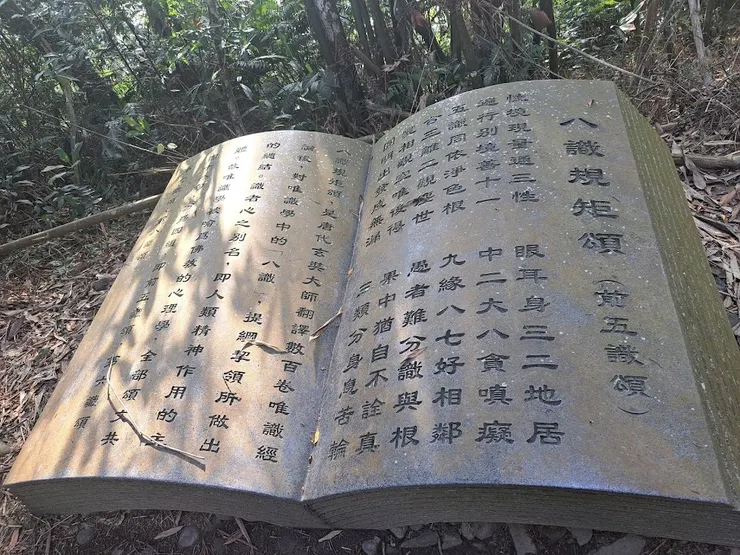 八識規矩頌（前五識頌）
性境現量通三性 眼耳身三二地居
遍行別境善十一 中二大八貪嗔癡
五識同依淨色根 九緣八七好相鄰
合三離二觀塵世 愚者難分識與根
變相觀空唯後得 果中猶自不詮真
圓明初發成無漏 三類分身息苦輪
八識規矩頌，是唐代玄奘大師翻譯數百卷唯識經
論後，對唯識學中的「八識」，提綱挈領所做出
的總結。識者心之別名，即人類精神作用的主
體，故唯識學被喻為佛教的心理學，全部頌文共
四頌，即前五識頌，第六識頌，